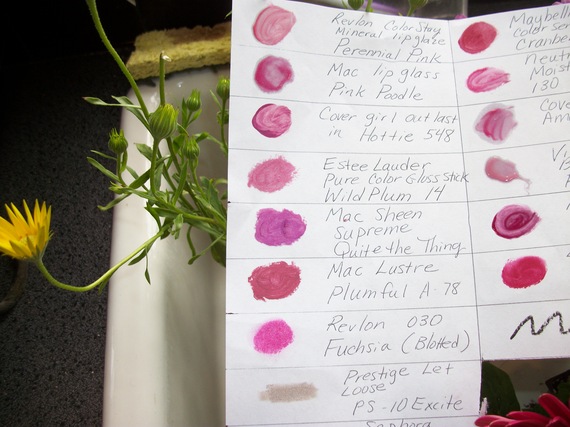 Revlon ColorStay
Mineral lipglaze
Perennial Pink
Mac lip glass
Pink Poodle
Cover girl outlast
in Hottie 548
Estee Lauder
Pure Color Gloss Stick
Wild Plum 14
Mac Sheen
Supreme
Quite the Thing
Mac Lustre
Plumful A-78
Revlon 030
Fuchsia (Blotted)
Prestige Let
Loose
PS-10 Excite
Sephora
Maybell
Color sen
Cranbe
Neutr
Moist
130
Cove
Am